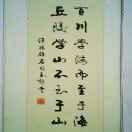 百川学海而至于海
丘陵学山不至于山